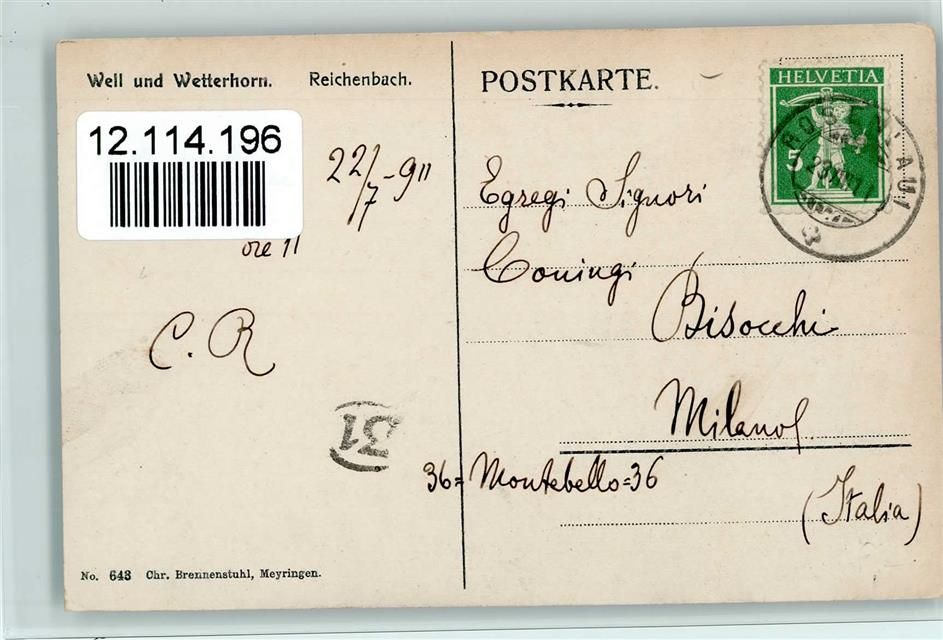 Well und Wetterhorn. Reichenbach.
POSTKARTE.
HELVETIA
5
12.114.196
22/7-911
ore 11
C. R
31
Egregi Signori
Coniugi
Bisocchi
Milano
36=Montebello=36
(Italia)
No. 643 Chr. Brennenstuhl, Meyringen.